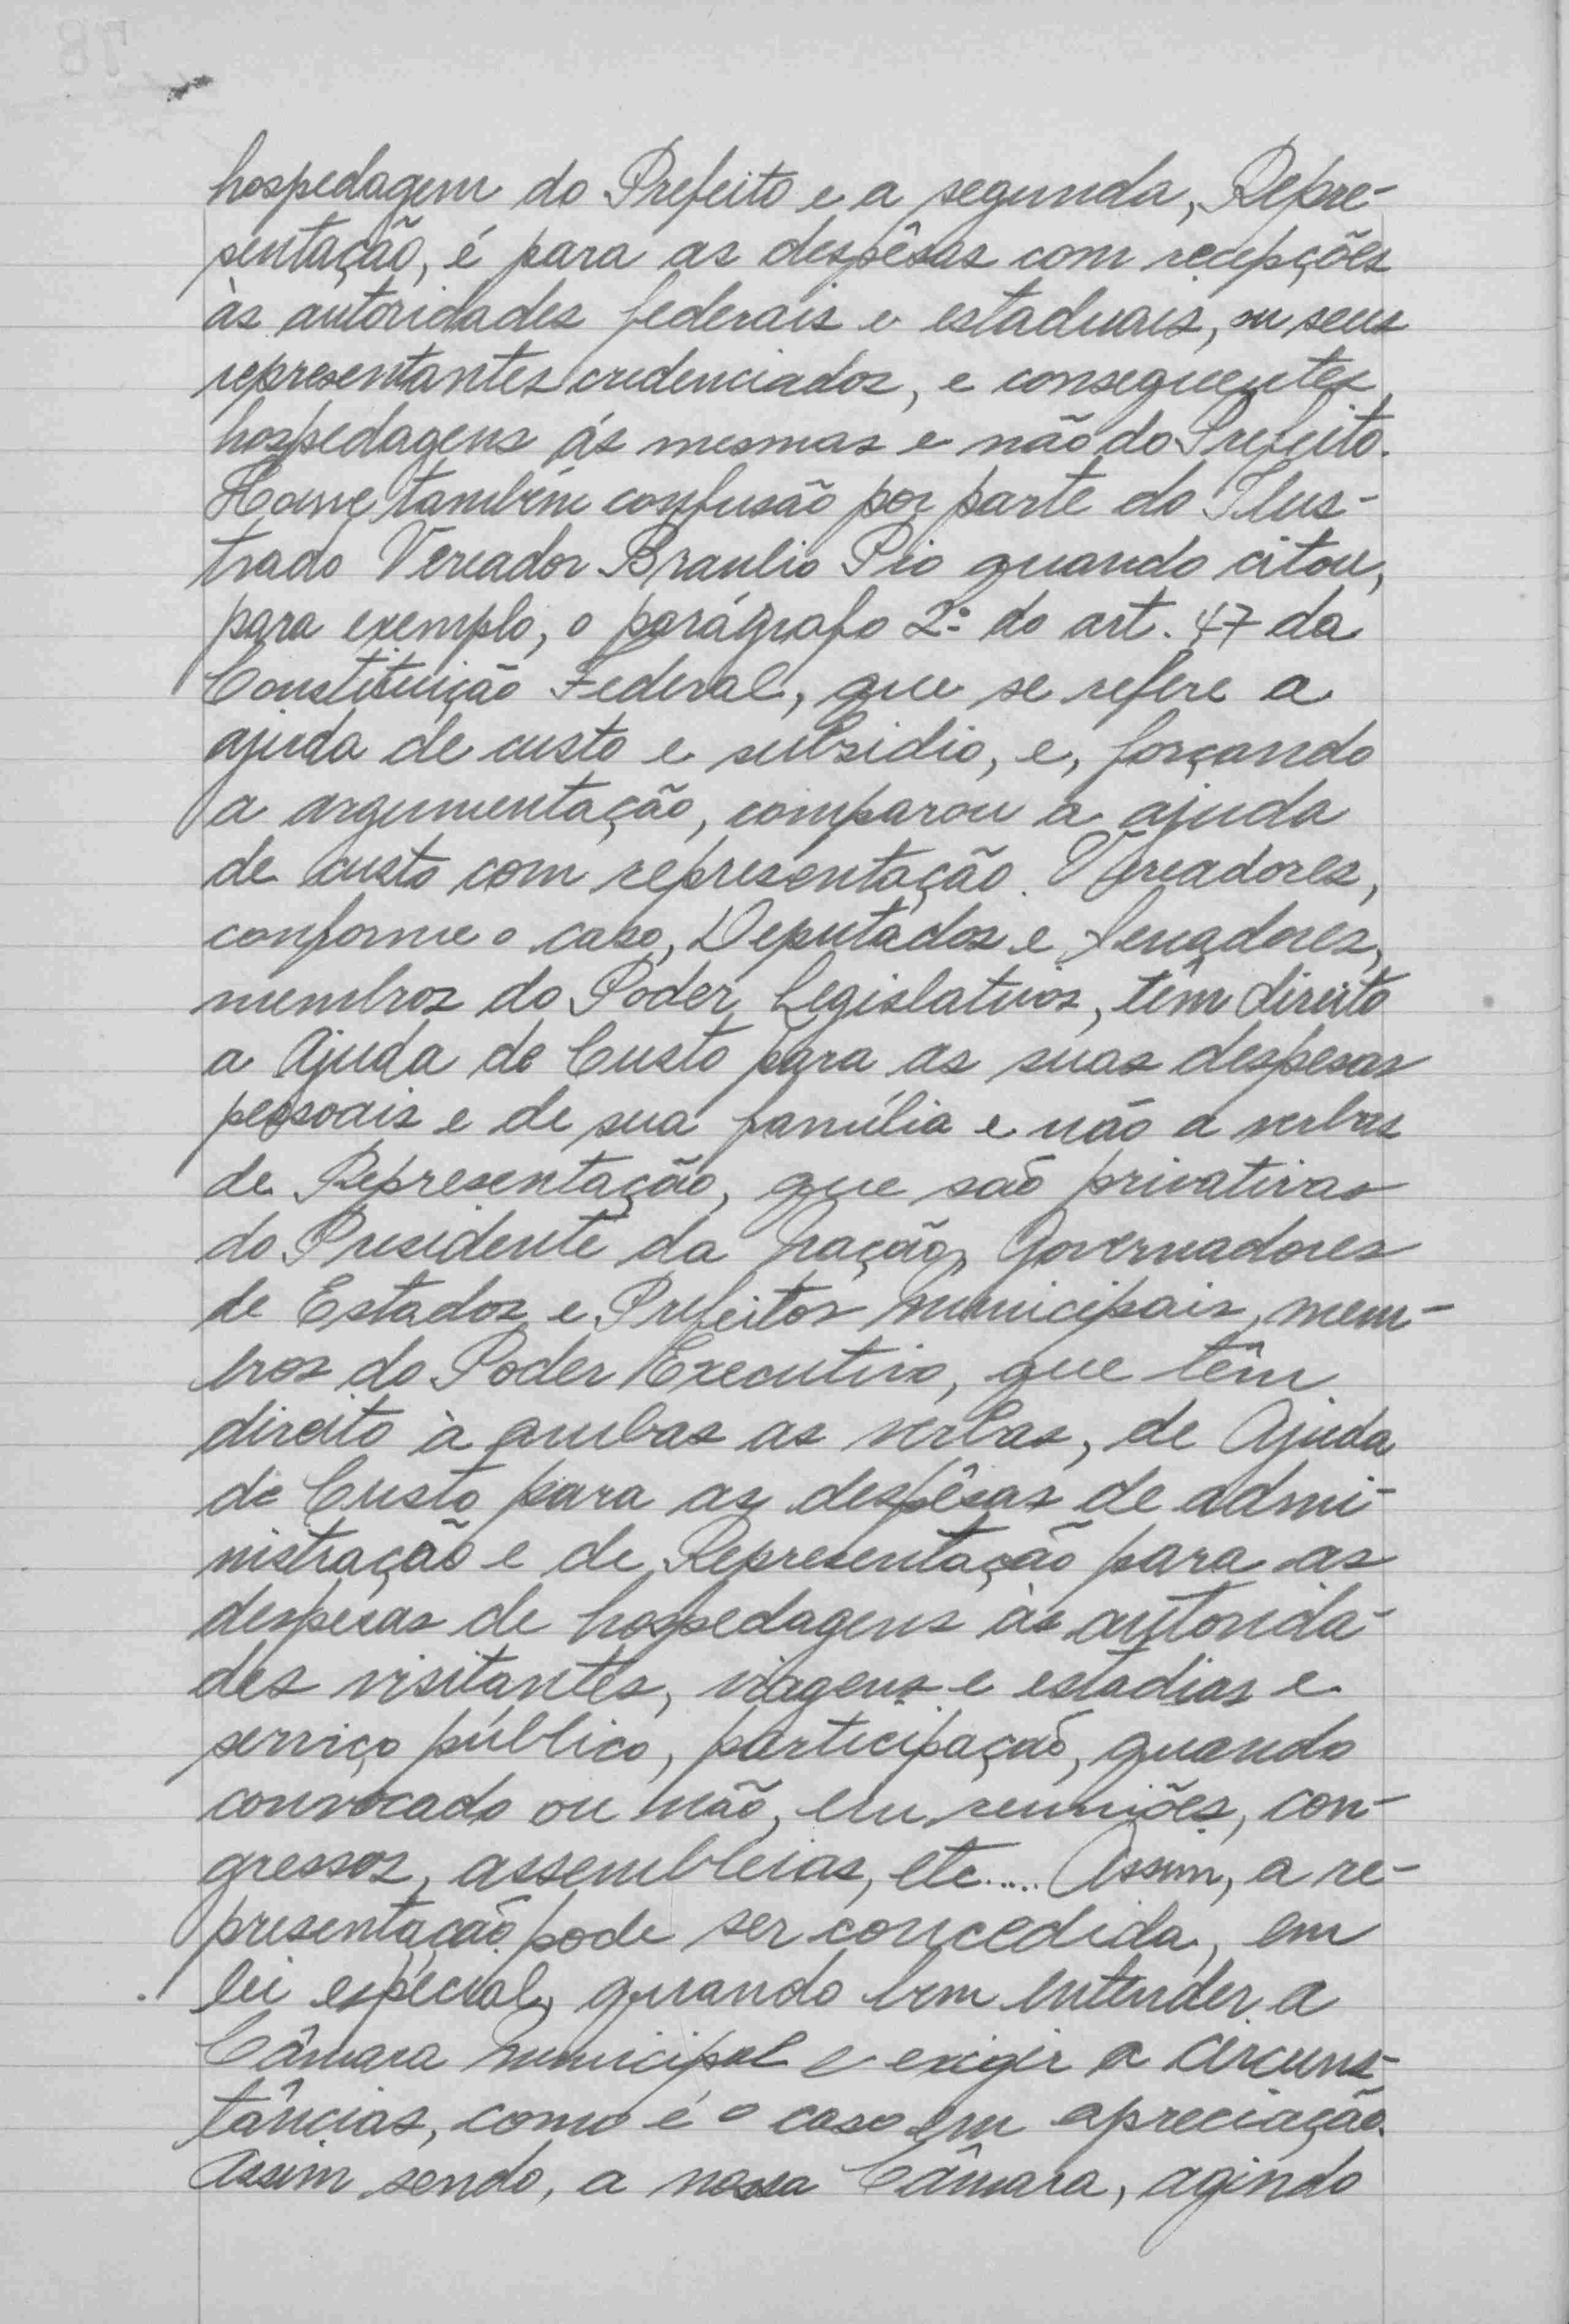 hospedagem do Prefeito e a segunda, Repre-
sentação, é para as despêsas com recepções
às autoridades federais e estaduais, ou seus
representantes credenciados, e consequentes
hospedagens ás mesmas e não do Prefeito.
Houve também confusão por parte do Ilus-
trado Vereador Braulio Pio quando citou,
para exemplo, o parágrafo 2º do art. 47 da
Constituição Federal, que se refere a
ajuda de custo e subsidio, e, forçando
a argumentação, comparou a ajuda
de custo com representação. Vereadores,
conforme o caso, Deputados e Senadores,
membros do Poder Legislativos, têm direito
a Ajuda de Custo para as suas despesas
pessoais e de sua família e não a verbas
de Representação, que são privativas
do Presidente da Nação, Governadores
de Estados e Prefeitos Municipais, mem-
bros do Poder Executivo, que têm
direito à ambas as verbas, de Ajuda
de Custo para as despêsas de admi-
nistração e de Representação para as
despesas de hospedagens às autorida-
des visitantes, viagens e estadias e
serviço público, participação, quando
convocado ou não, em reuniões, con-
gressos, assembleias, etc.... Assim, a re-
presentação pode ser concedida, em
lei especial, quando bem entender a
Câmara Municipal e exigir a circuns-
tâncias, como é o caso em apreciação.
Assim sendo, a nossa Câmara, agindo